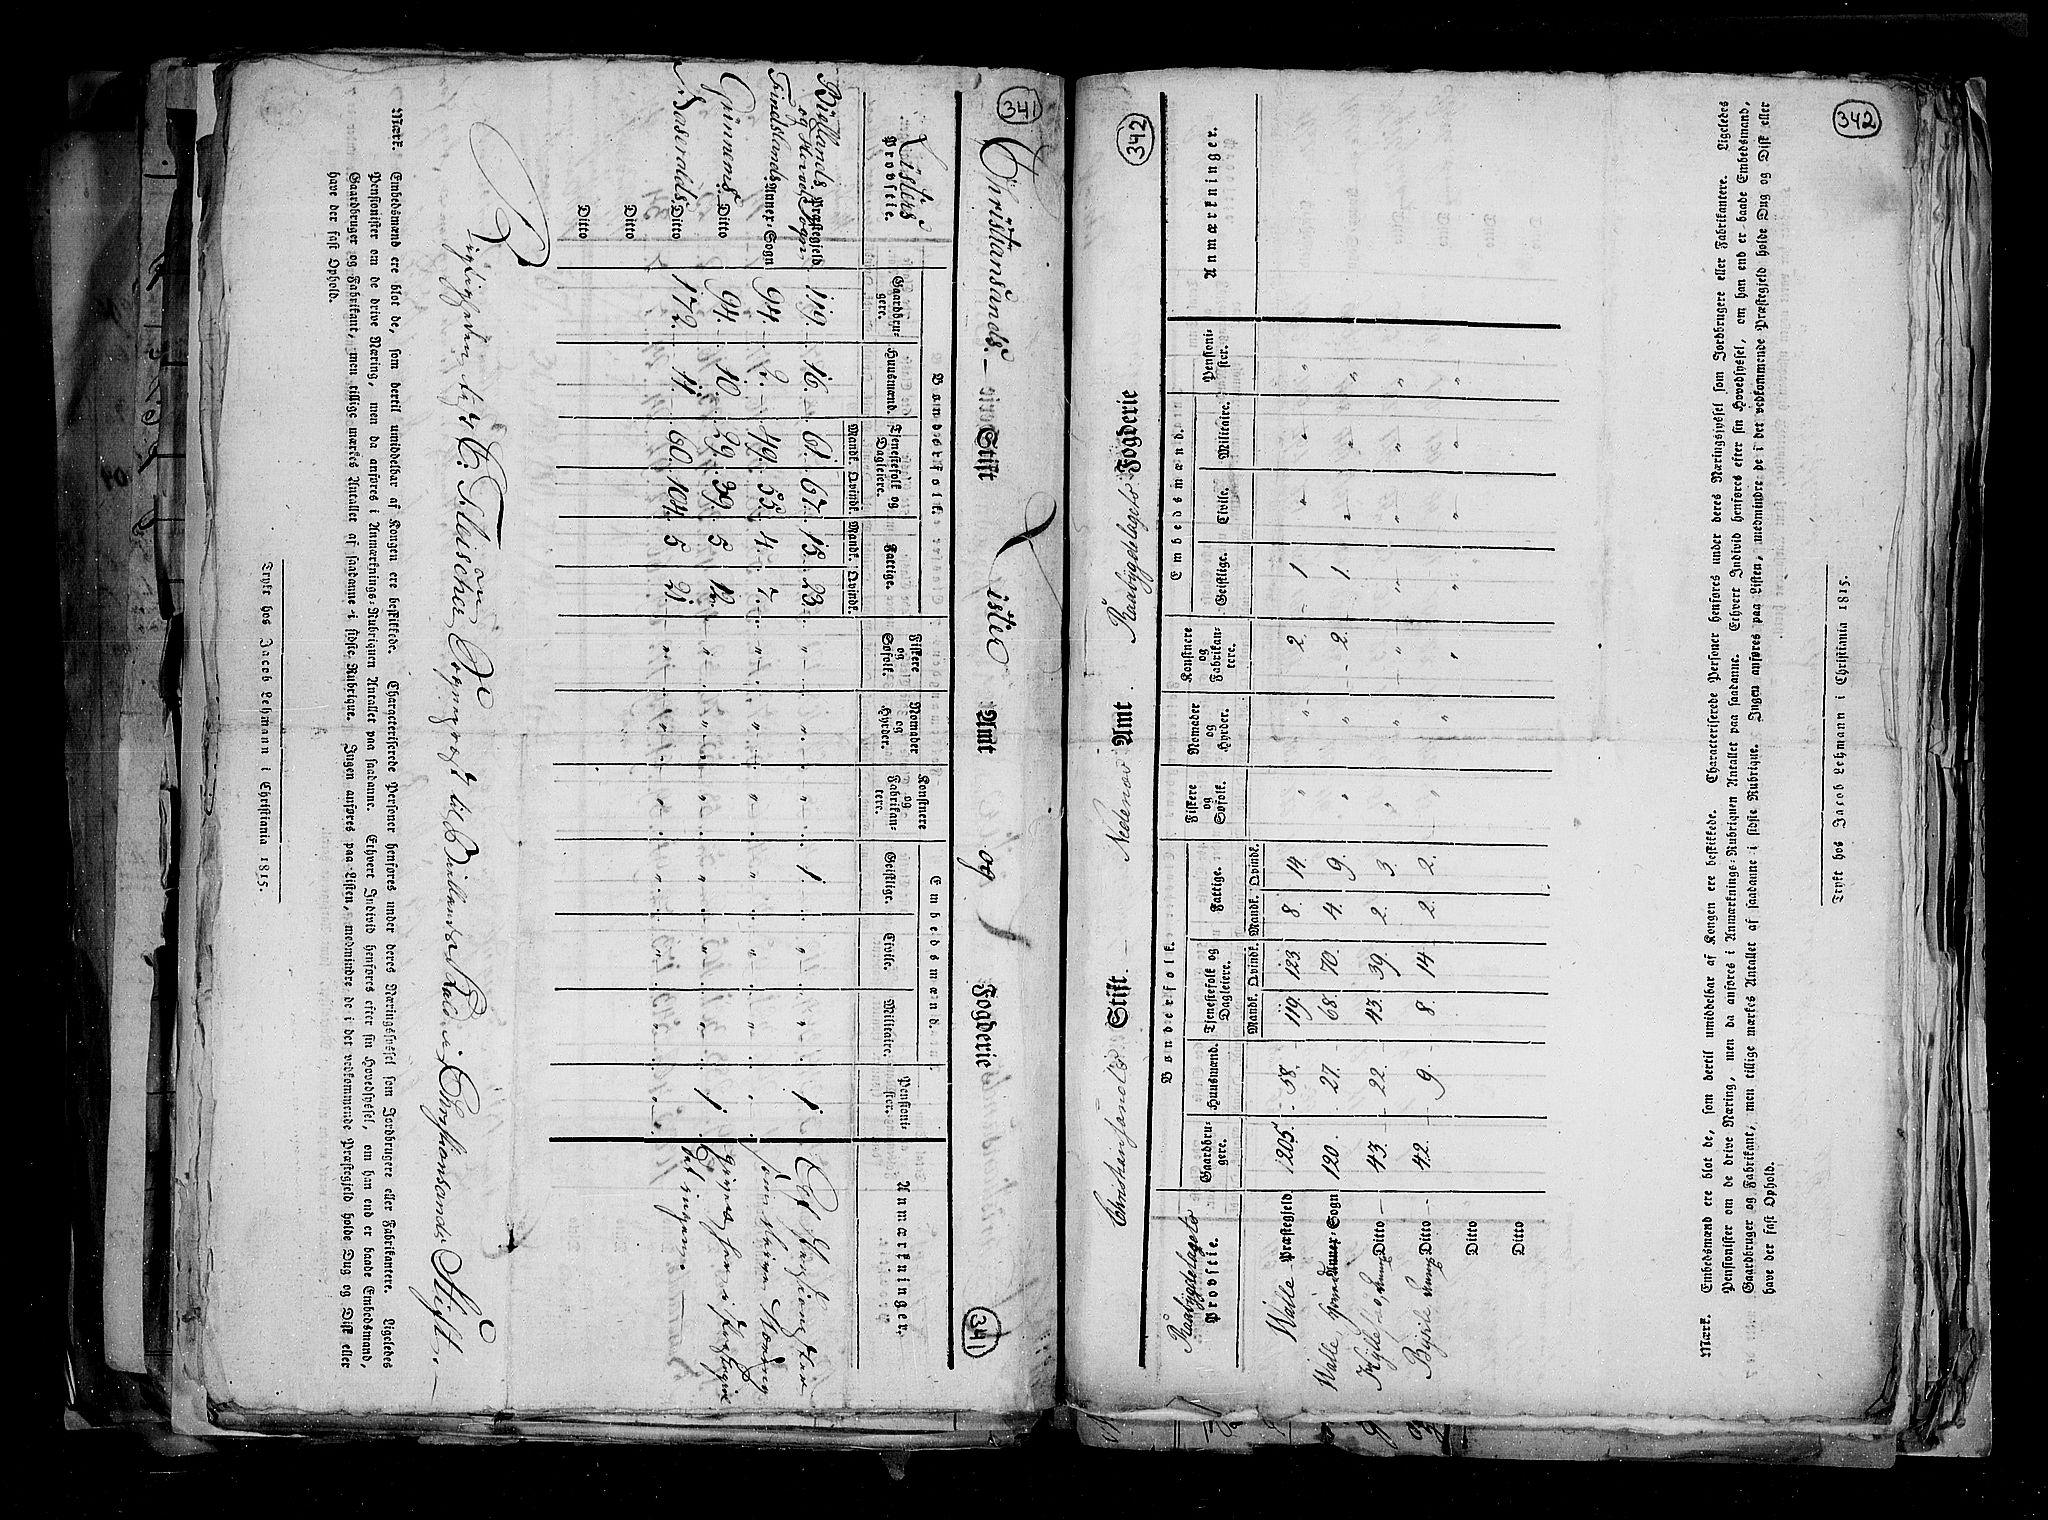 341
Christiansands Stift Lister Amt og Fogderie
341
Listers Provstie.
Bondefolk.
Embedsmænd.
Gaardbrugere.
Huusmænd.
Tjenestefolk og Dagleiere.
Fattige.
Fiskere og Søfolk.
Nomader og Hyrder.
Konstnere og Fabrikantere.
Geistlige.
Civile.
Militaire.
Pensionister.
Anmærkninger.
Mandk. Qvindk. Mandk. Qvindk.
Præstegjeld 119. 16. 61. 67. 15. 23. 1. 1.
Findslands Annex-Sogn 94. 2. 49. 55. 4. 7.
Grinnems Ditto 94. 10. 29. 39. 5. 12. 1.
Ditto 172. 11. 60. 104. 5. 21
Ditto
Ditto
Rigtigheden
Fleischer, Sognepræst til i Christiansands Stift.
Mærk. Embedsmænd ere blot de, som dertil umiddelbar af Kongen ere beskikkede. Characteriserede Personer henføres under deres Næringsjyssel som Jordbrugere eller Fabrikantere. Ligeledes
Pensionister om de drive Næring, men da anføres i Anmærknings-Rubriquen Antallet paa saadanne. Ethvert Individ henføres efter sin Hovedsyssel, om han end er baade Embedsmand,
Gaardbruger og Fabrikant, men tillige mærkes Antallet af saadanne i sidste Rubrique. Ingen anføres paa Listen, medmindre de i det vedkommende Præstegjeld holde Dug og Disk eller
have der fast Ophold.
Trykt hos Jacob Lehmann i Christiania 1815.
342
342
Christiansands Stift. Nedenæs Amt. Raabygdelagets Fogderie
Raabygdelagets Provstie.
Bondefolk.
Embedsmænd.
Gaardbrugere.
Huusmænd.
Tjenestefolk og Dagleiere.
Fattige.
Fiskere og Søfolk.
Nomader og Hyrder.
Konstnere og Fabrikantere.
Geistlige.
Civile.
Militaire.
Pensionister.
Anmærkninger.
Mandk. Qvindk. Mandk. Qvindk.
Walle Præstegjeld 58. 119. 123. 8. 14. " " 2. 1 " " "
Walle Sogn 120. 27. 68. 70. 4. 9. " " 2. 1. " " "
Ditto 43. 22. 43. 39. 2. 3. " " " " " " "
Ditto 42. 9. 8. 14. 2. 2. " " " " " " "
Ditto
Ditto
Mærk. Embedsmænd ere blot de, som dertil umiddelbar af Kongen ere beskikkede. Characteriserede Personer henføres under deres Næringsjyssel som Jordbrugere eller Fabrikantere. Ligeledes
Pensionister om de drive Næring, men da anføres i Anmærknings-Rubriquen Antallet paa saadanne. Ethvert Individ henføres efter sin Hovedsyssel, om han end er baade Embedsmand,
Gaardbruger og Fabrikant, men tillige mærkes Antallet af saadanne i sidste Rubrique. Ingen anføres paa Listen, medmindre de i det vedkommende Præstegjeld holde Dug og Disk eller
have der fast Ophold.
Trykt hos Jacob Lehmann i Christiania 1815.